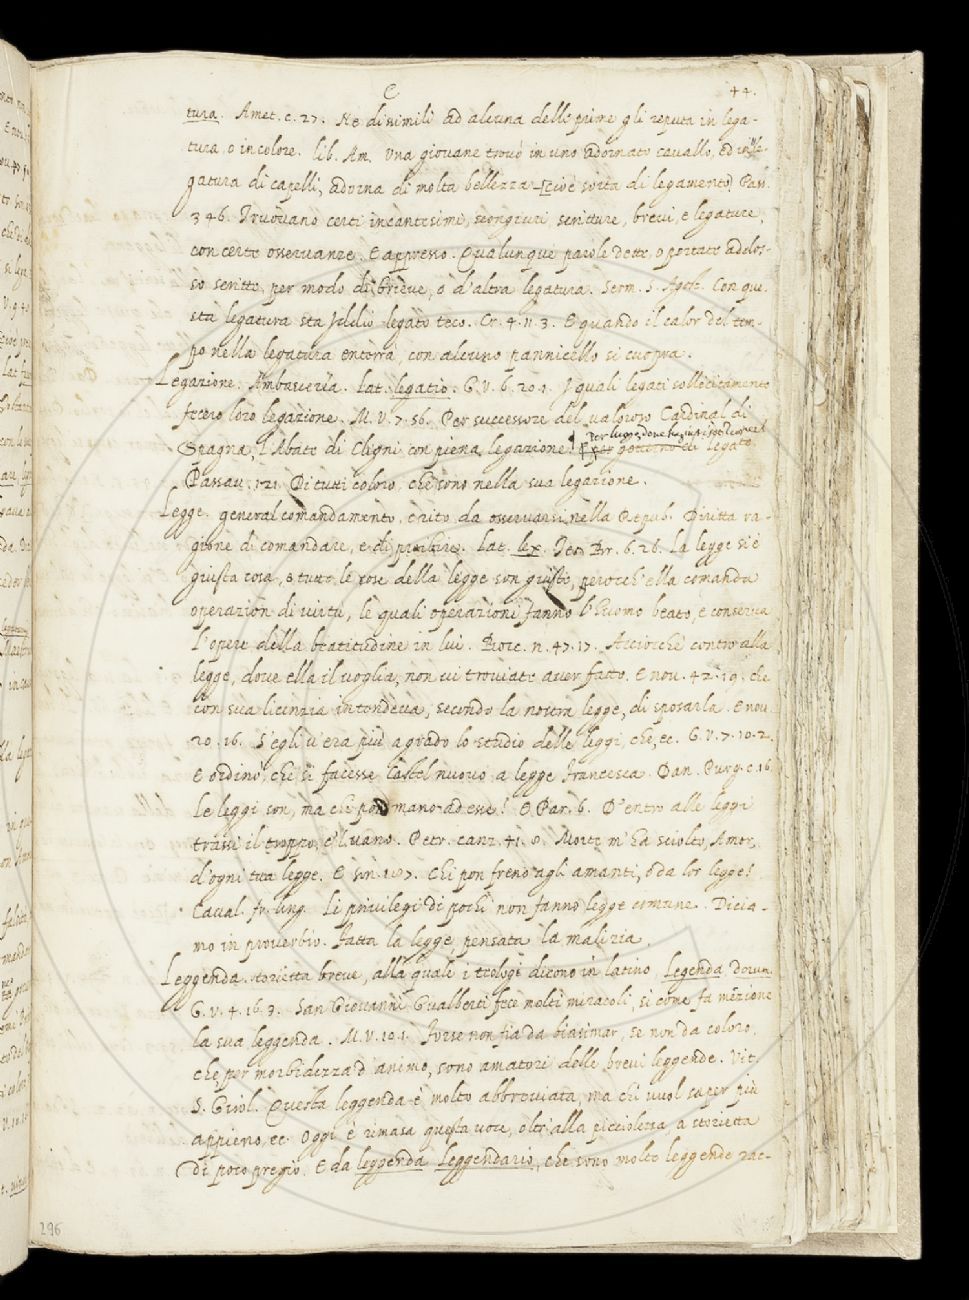 C 44.
tura. Amet. c. 27. Ne dissimili ad alcuna delle prime gli reputa in lega-
tura, o in colore. lib. Am. Una giovane trovò in uno adornato cavallo, ed in le-
gatura di capelli, adorna di molta bellezza [cioè sorta di legamento] Pass.
346. Truovano certi incantesimi, scongiuri scritture, brevi, e legature,
con certe osservanze. E appresso. Qualunque parole dette, o portate addos-
so scritte, per modo di brieve, o d'altra legatura. Serm. S. Agost. Con que-
sta legatura sta Iddio legato teco. Cr. 4. 11. 3. E quando il calor del tem-
po nella legatura enterrà, con alcuno pannicello si cuopra.
Legazione. Ambasceria. Lat. legatio. G. V. 6. 20. 1. I quali legati sollecitamente
fecero loro legazione. M. V. 7. 56. Per successore del valoroso Cardinal di
Spagna, l'Abate di Cligni con piena legazione.
per governo di Legato.
Passav. 121. Di tutti coloro, che sono nella sua legazione.
Legge. general comandamento, da osservarsi nella Repub. Diritta ra-
gione di comandare, e di proibire. Lat. lex. Teso Br. 6. 26. La legge si è
giusta cosa, e tutte le cose della legge son giuste, perocch'ella comanda
operazion di virtù, le quali operazioni fanno l'huomo beato, e conserva
l'opere della beatitudine in lui. Bocc. n. 47. 17. Acciocchè contro alla
legge, dove ella il voglia, non vi troviate aver fatto. E nov. 42. 19. che
con sua licenzia intendeva, secondo la nostra legge, di sposarla. E nov.
20. 16. S'egli v'era più a grado lo studio delle leggi, che, ec. G. V. 7. 10. 2.
E ordinò, che si facesse Castel nuovo a legge francesca. Dan. Purg. c. 16.
Le leggi son, ma chi pon mano ad esse? E Par. 6. D'entro alle leggi
trassi il troppo, e'l vano. Petr. canz. 41. 8. Morte m'ha sciolto, Amor,
d'ogni tua legge. E son. Chi pon freno agli amanti, o dà lor legge?
Caval. fr. ling. Li privilegi di pochi non fanno legge comune. Dicia-
mo in proverbio. Fatta la legge, pensata la malizia.
Leggenda. storietta breve, alla quale i teologi dicono in latino, Legenda
G. V. 4. 16. 3. San Giovanni Gualberti fece molti miracoli, sì come fa menzione
la sua leggenda. M. V. 10. 1. Forse non fia da biasimar, se non da coloro,
che, per morbidezza d'animo, sono amatori delle brevi leggende. Vit.
S. Girol. Questa leggenda è molto abbreviata, ma chi vuol saper più
appieno, ec. Oggi è rimasa questa voce, oltr'alla piccioletta, a storietta
di poco pregio. E da leggenda Leggendario, che sono molte leggende rac-
296